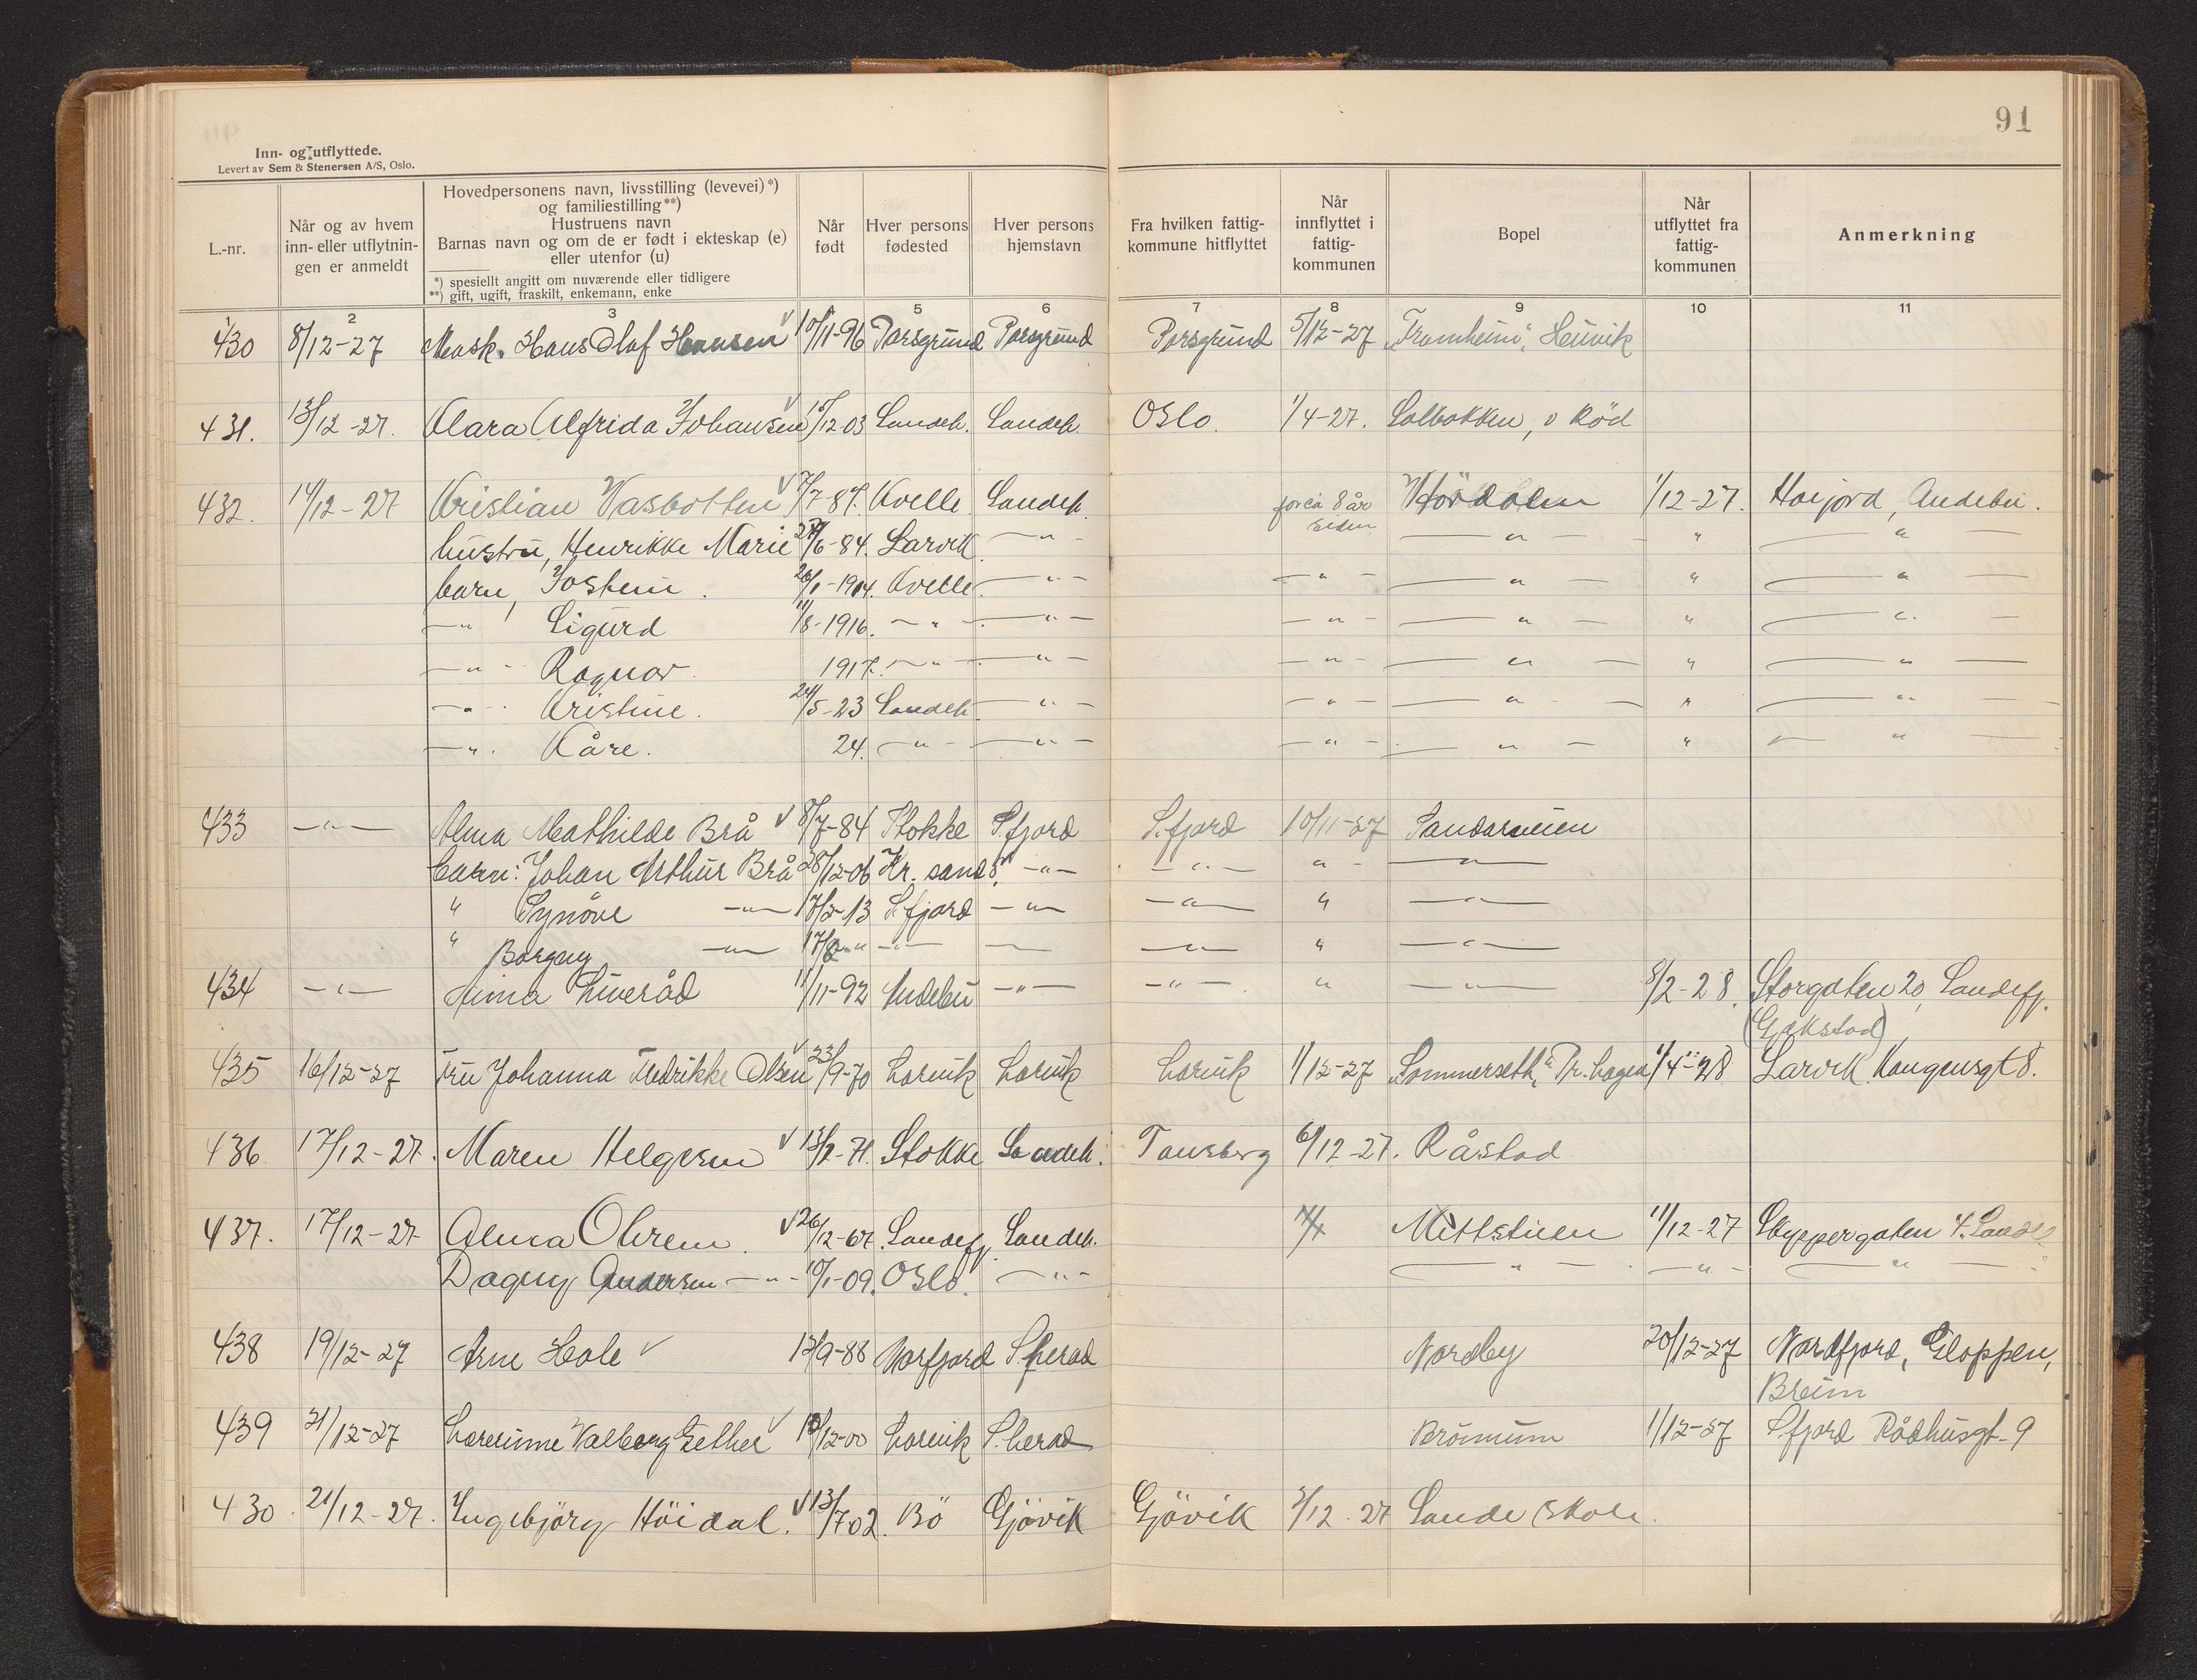 91
Inn- og utflyttede.
Levert av Sem & Stenersen A/S, Oslo.
L.-nr.
Når og av hvem inn- eller utflytnin- gen er anmeldt
Hovedpersonens navn, livsstilling (levevei)*)
og familiestilling**)
Hustruens navn
Barnas navn og om de er født i ekteskap (e)
eller utenfor (u)
*) spesiellt angitt om nuværende eller tidligere
**) gift, ugift, fraskilt, enkemann, enke
Når født
Hver persons fødested
Hver persons hjemstavn
Fra hvilken fattig- kommune hitflyttet
Når innflyttet i fattig- kommunen
Bopel
Når utflyttet fra fattig- kommunen
Anmerkning
2 3 5 6 7 8 9 10 11
430 8/12-27 Mask. Hans Olaf Hansen 10/11-96 Porsgrund Porsgrund Porsgrund 5/12-27 "Framheim", Heimvik
431. 13/12-27. Klara Alfrida Johansen 15/12-03 Sandeh. Sandeh. Oslo. 1/4-27. Solbakken, v Röd
432. 14/12-27 Kristian Vasbotten 7/7-87. Kvelle Sandeh. for ca 8 år siden Hördalen 1/12-27. Høijord, Andebu.
hustru, Henrikke Marie 27/6-84. Larvik -"- -"- " -"-
barn, Jostein. 26/1-1914. Kvelle. -"- -"- -"- " -"-
-"- Sigurd 11/8-1916. -"- -"- -"- -"- " -"-
-"- Ragnar. 1917. -"- -"- -"- -"- " -"-
-"- Kristine. 24/5-23 Sandeh. -"- -"- -"- " -"-
-"- Kåre. 24. -"- -"- -"- -"- " -"-
433 -"- Alma Mathilde Brå 8/7-84 Stokke S.fjord S.fjord 10/11-27 Sandarveien
barn: Johan Arthur Brå 28/12-06 Kr. sand S. -"- -"- " -"-
" Synöve -"- 17/2-13 S.fjord -"- -"- " -"-
" Borgny -"- 17/2-" -"- -"- -"- " -"-
434 -"- Anna Liveråd 11/11-92 Andebu -"- -"- " -"- 8/2-28. Storgaten 20, Sandefj.
(Gjekstad)
435 16/12-27 Fru Johanna Fredrikke Olsen 23/9-70 Larvik Larvik Larvik 1/12-27 "Sommerseth", Pr. hagen 1/4-28 Larvik Kongensgt 8.
436. 17/12-27. Maren Helgesen 13/2-71. Stokke Sandeh. Tønsberg 6/12-27. Råstad
437. 17/12-27 Alma Ohrem. 26/12-67. Sandefj. Sandeh. Mittstuen 1/12-27 Skyppergaten 4. Sandef
Dagny Andersen -"- 10/1-09. Oslo. -"- -"- -"- -"-
438 19/12-27 Arne Hole 12/9-88 Norfjord S.herad Nordby 20/12-27 Nordfjord, Gloppen,
Breim
439 21/12-27 Larvinne Valborg Gether 10/12-00 Larvik S.herad Brönnum 1/12-27 S.fjord Rådhusgt-9
430. 21/12-27. Ingebjörg Höidal. 13/7 02. Bö Gjövik Gjövik 2/12.27 Sande skole.